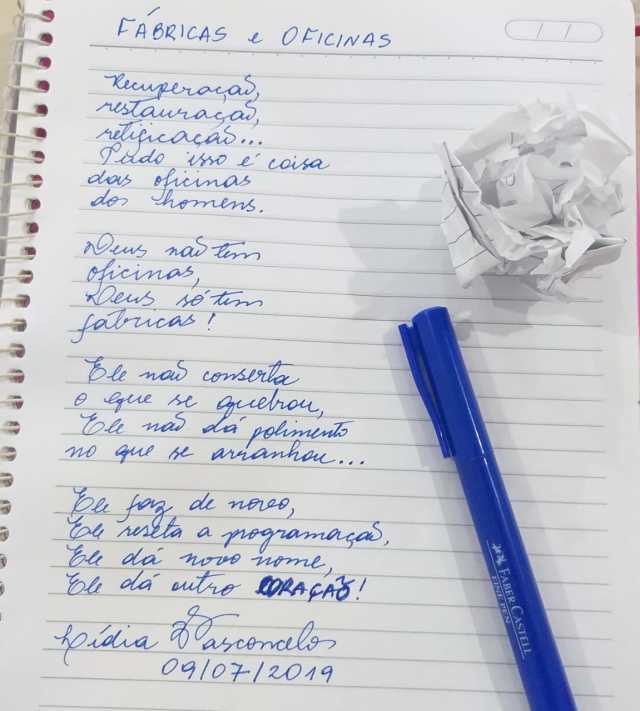 FÁBRICAS e OFICINAS
/ /
Recuperação,
restauração,
retificação...
Tudo isso é coisa
das oficinas
dos homens.
Deus não tem
oficinas,
Deus só tem
fábricas!
Ele não conserta
o que se quebrou,
Ele não dá polimento
no que se arranhou...
Ele faz de novo,
Ele reseta a programação,
Ele dá novo nome,
Ele dá outro CORAÇÃO!
Lídia Vasconcelos
09/07/2019
FABER CASTELL
FINE PEN